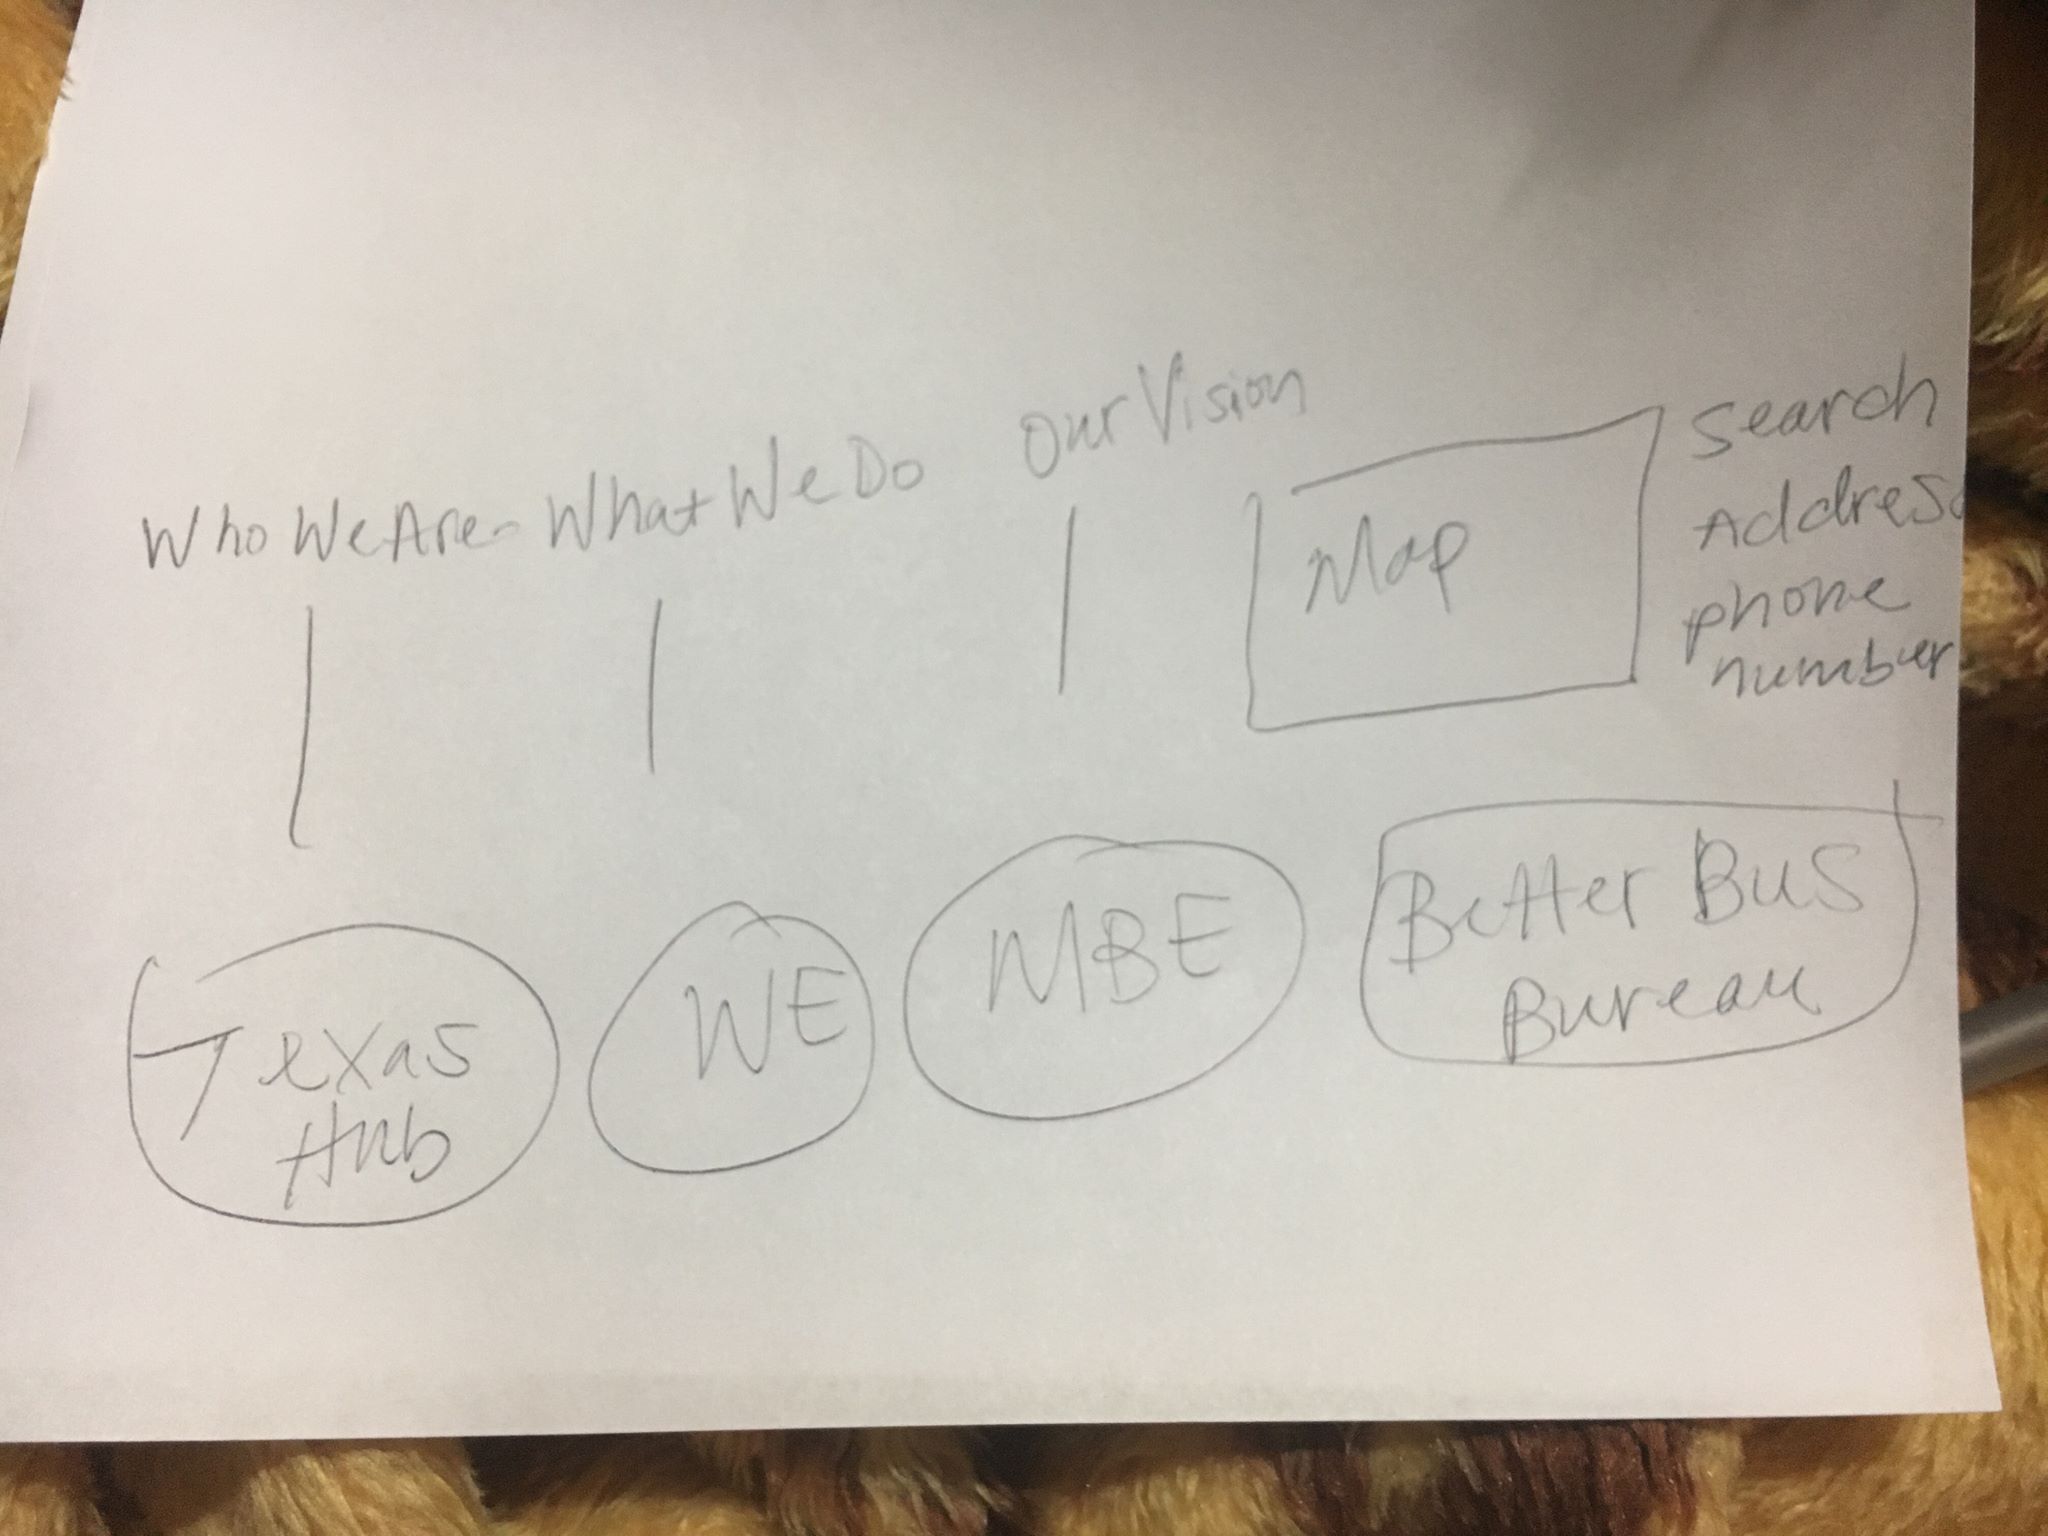 Who We Are What We Do Our Vision
Map
Search
Address
phone
number
Texas
Hub
WE
MBE
Better Bus
Bureau